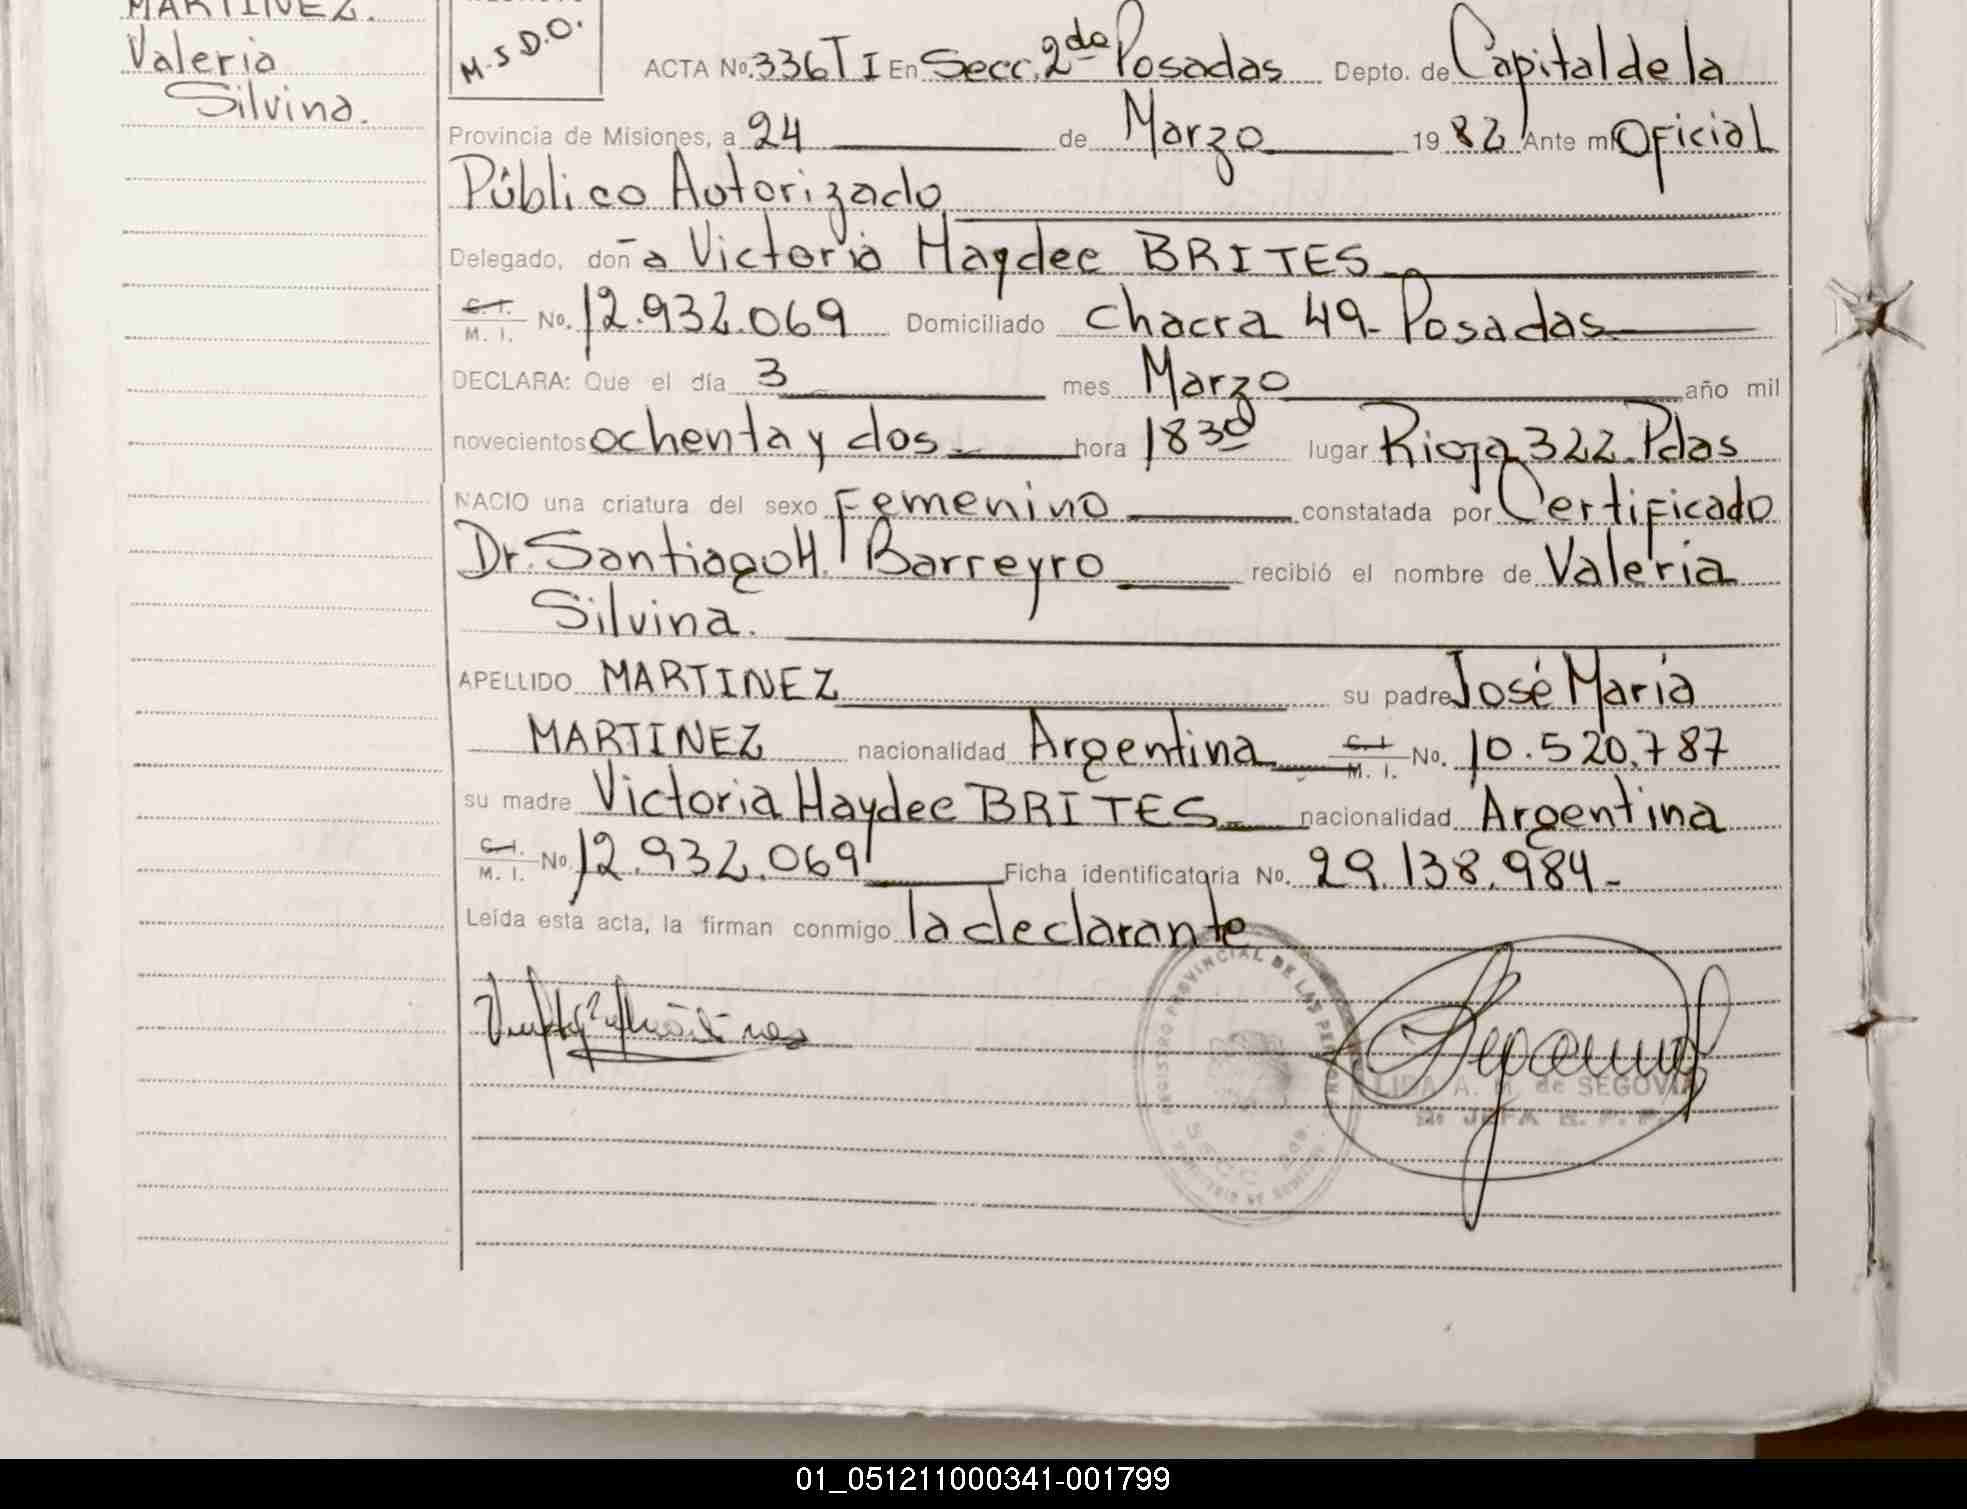 MARTINEZ.
Valeria
Silvina.
M.S D.O.
ACTA No. 336 T I En Secc. 2da Posadas Depto. de Capital de la
Provincia de Misiones, a 24 de Marzo 1982 Ante mi Oficial
Público Autorizado
Delegado, doña Victoria Haydee BRITES
C. I.
M. I. No. 12.932.069 Domiciliado chacra 49- Posadas
DECLARA: Que el día 3 mes Marzo año mil
novecientos ochenta y dos hora 1830 lugar Rioja 322. Pdas
NACIO una criatura del sexo Femenino constatada por Certificado
Dr. Santiago H. Barreyro recibió el nombre de Valeria
Silvina.
APELLIDO MARTINEZ su padre José María
MARTINEZ nacionalidad Argentina C. I. M. I. No. 10.520.787
su madre Victoria Haydee BRITES nacionalidad Argentina
C. I.
M. I. No. 12.932.069 Ficha identificatoria No. 29.138.984-
Leída esta acta, la firman conmigo la declarante
REGISTRO PROVINCIAL DE LAS PERSONAS
de SEGOVIA
JEFA R. P. P.
01_051211000341-001799